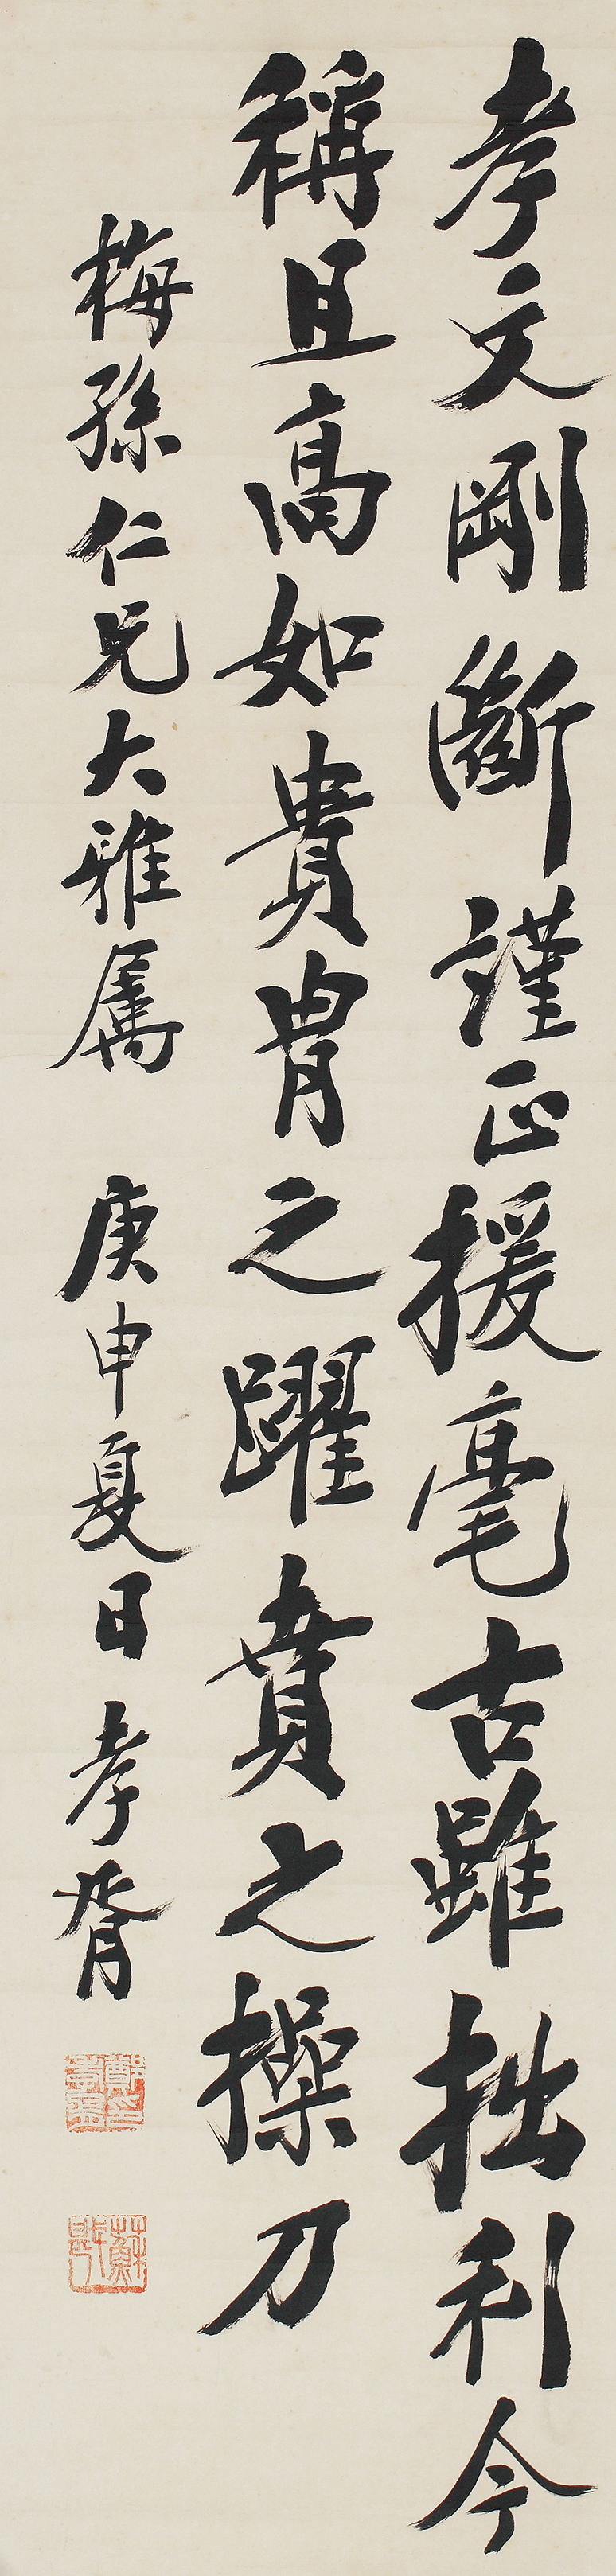 孝文剛斷謹正援毫古雖拙利今
稱且高如貴胄之躍賁之操刀
梅孫仁兄大雅屬 庚申夏日 孝胥
鄭印孝胥
蘇戡